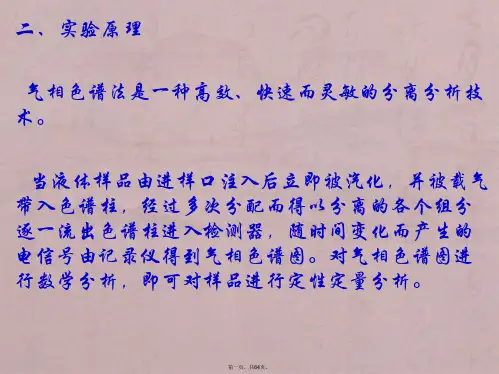 二、实验原理
气相色谱法是一种高效、快速而灵敏的分离分析技
术。
当液体样品由进样口注入后立即被汽化，并被载气
带入色谱柱，经过多次分配而得以分离的各个组分
逐一流出色谱柱进入检测器，随时间变化而产生的
电信号由记录仪得到气相色谱图。对气相色谱图进
行数学分析，即可对样品进行定性定量分析。
第一页，共64页。